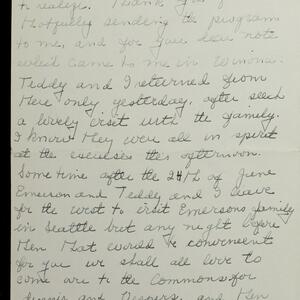 to realize. Thank you for
thotfully sending the program
to me, and for you dear note
which came to me in Winona.
Teddy and I returned from
there only yesterday, after such
a lovely visit with the family.
I know they were all in spirit
at the exercises this afternoon.
Some time after the 24th of June
Emerson and Teddy and I leave
for the west to visit Emersons family
in Seattle but any night before
then that would be convenient
for you we shall all love to
come are to the Commons for
dinner and Desporte, and then